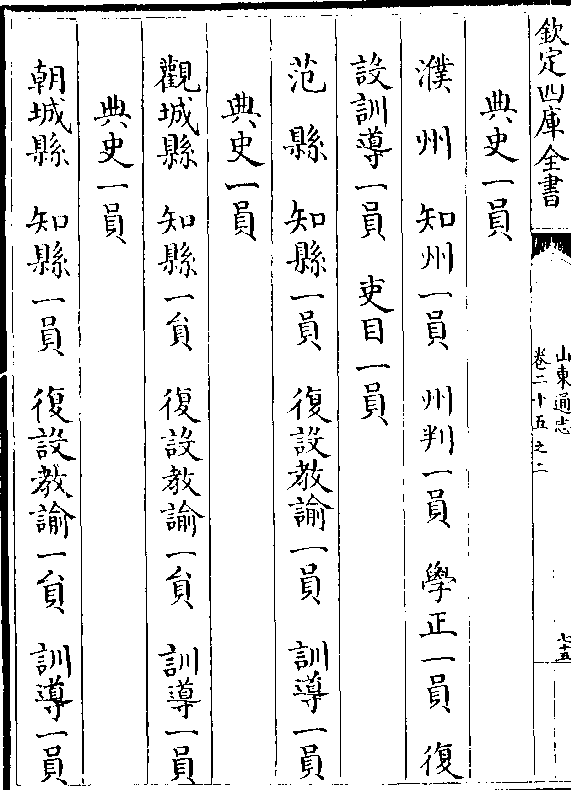 欽定四庫全書
山東通志
卷二十五之二
七十五
典史一員
濮州 知州一員 州判一員 學正一員 復
設訓導一員 吏目一員
范縣 知縣一員 復設教諭一員 訓導一員
典史一員
觀城縣 知縣一貟 復設教諭一貟 訓導一員
典史一員
朝城縣 知縣一員 復設教諭一貟 訓導一員